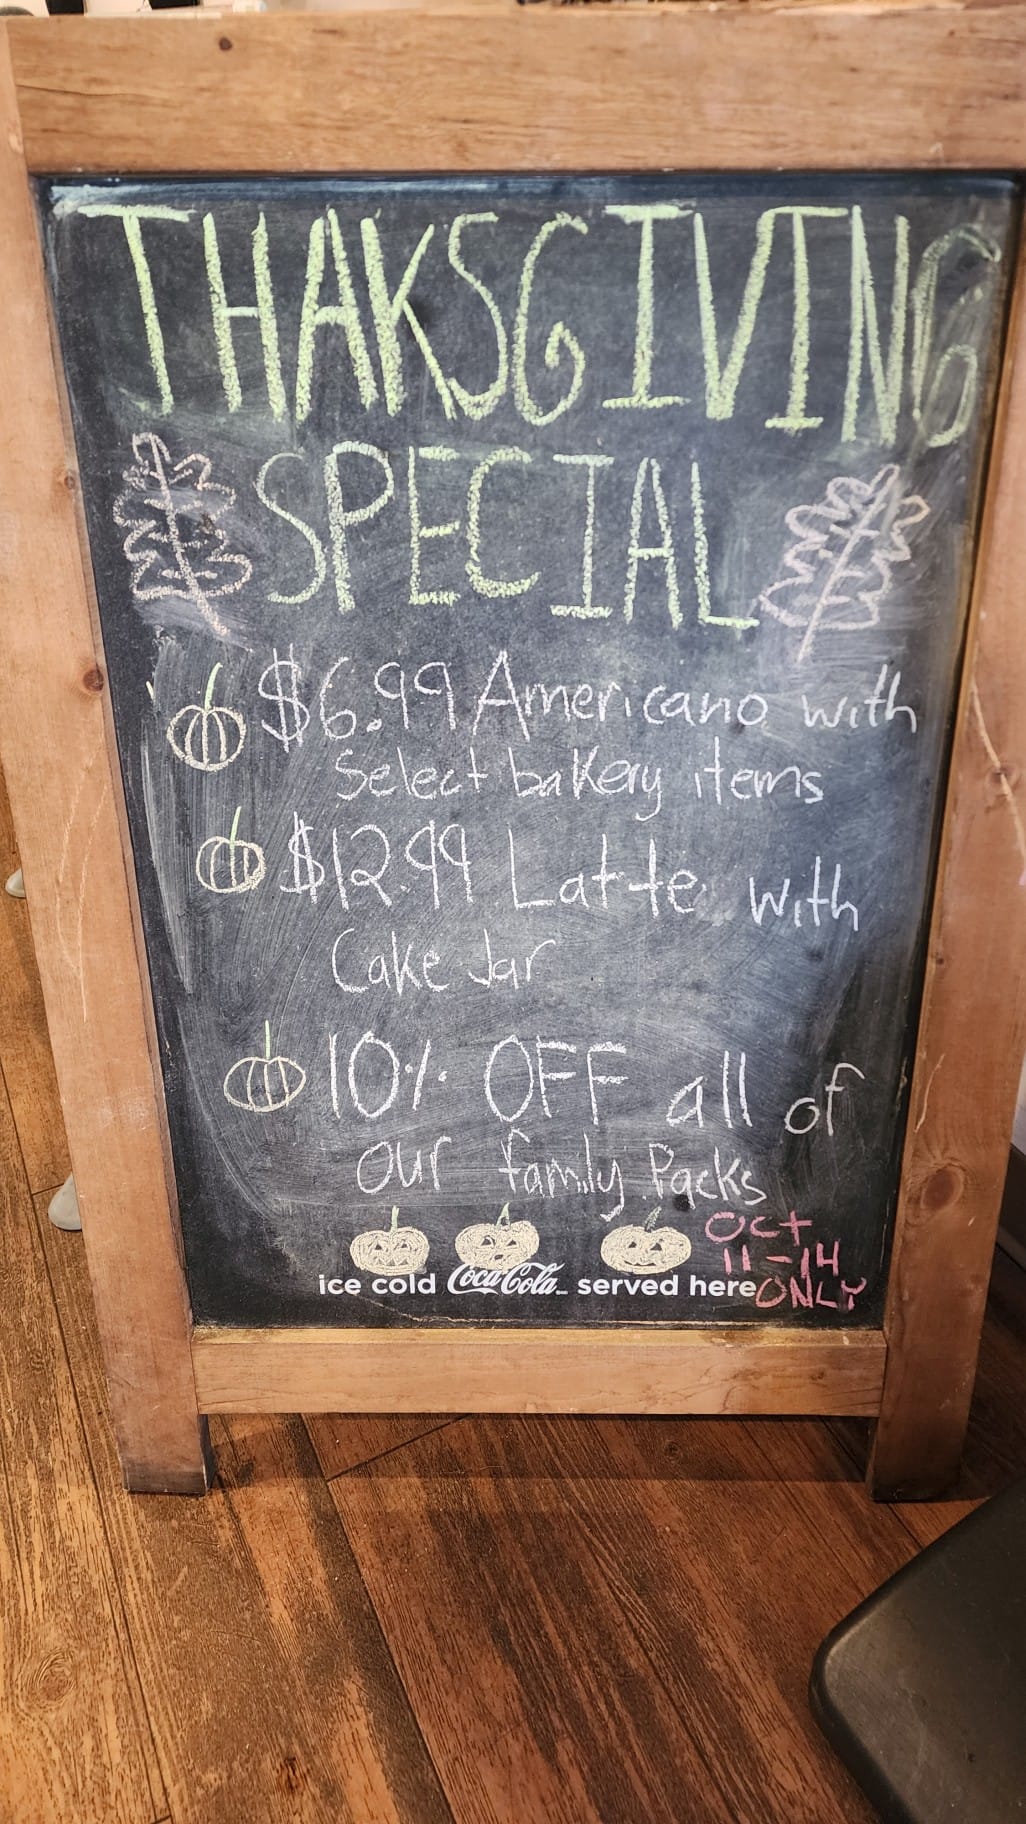 THAKSGIVING
SPECIAL
$6.99 Americano with
Select bakery items
$12.99 Latte with
Cake Jar
10% OFF all of
our family Packs
OCT
11-14
ice cold Coca-Cola served here ONLY